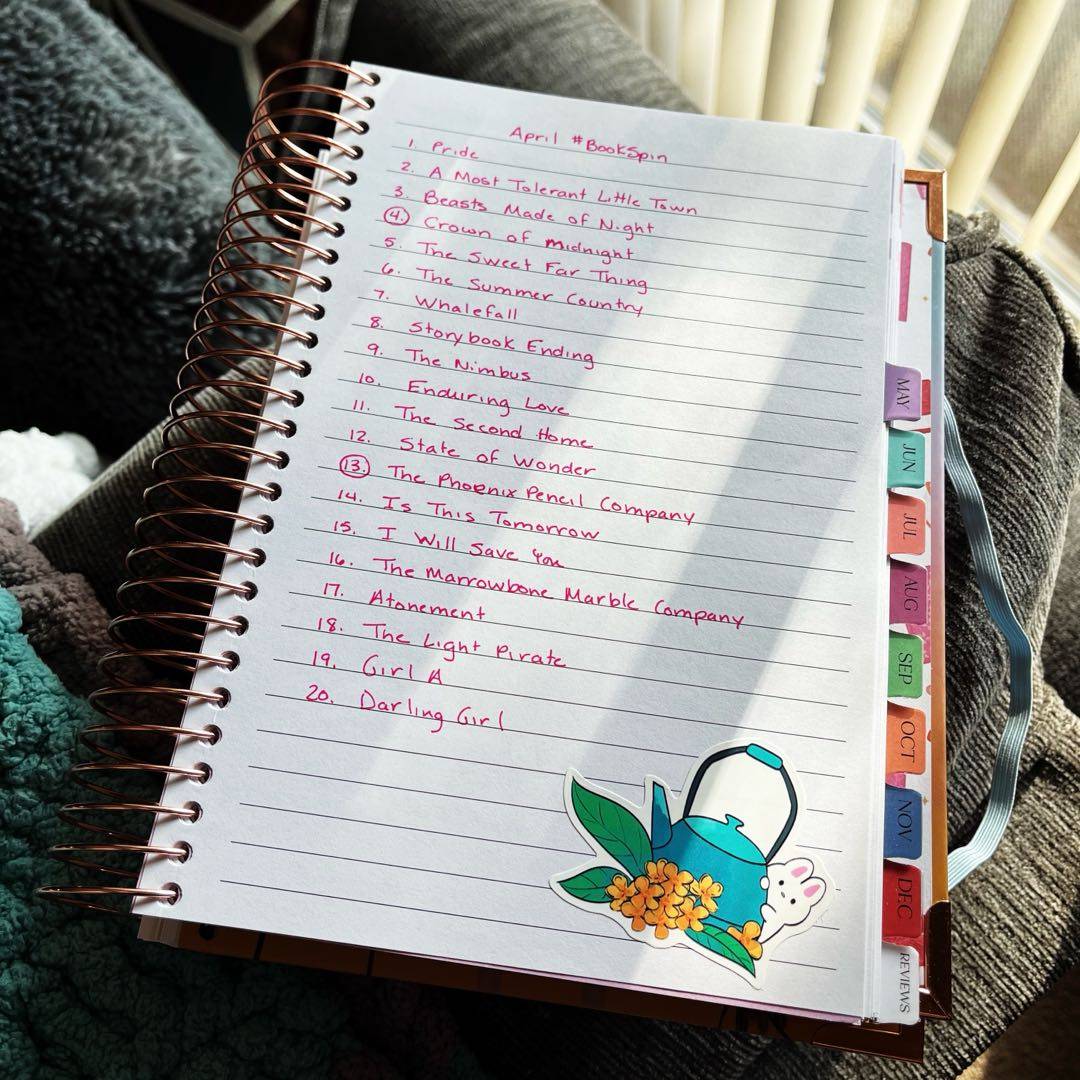 April #BookSpin
1. Pride
2. A Most Tolerant Little Town
3. Beasts Made of Night
4. Crown of Midnight
5. The Sweet Far Thing
6. The Summer Country
7. Whalefall
8. Storybook Ending
9. The Nimbus
10. Enduring Love
11. The Second Home
12. State of Wonder
13. The Phoenix Pencil Company
14. Is This Tomorrow
15. I Will Save You
16. The Marrowbone Marble Company
17. Atonement
18. The Light Pirate
19. Girl A
20. Darling Girl
MAY
JUN
JUL
AUG
SEP
OCT
NOV
DEC
REVIEWS